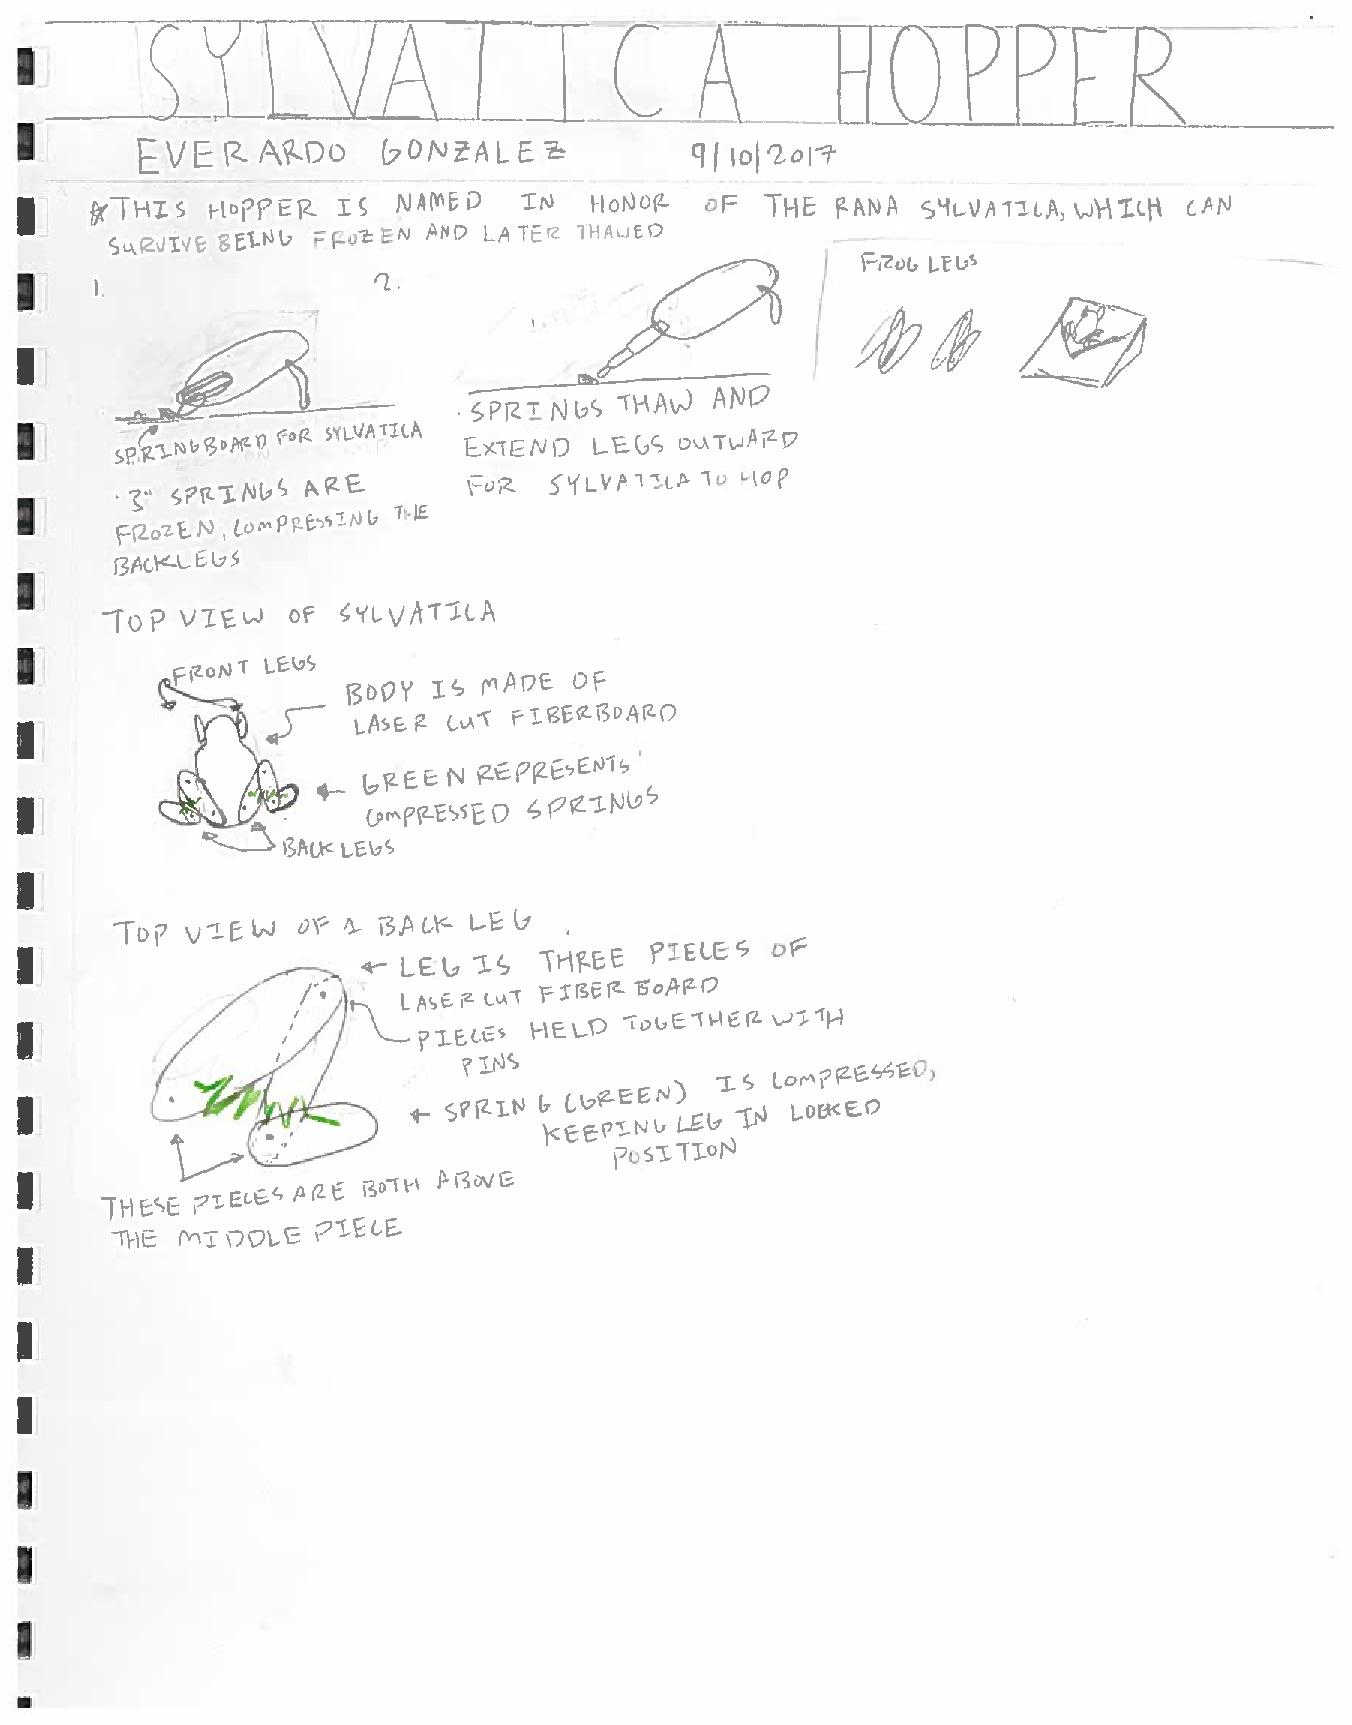 SYLVATICA HOPPER
EVERARDO GONZALEZ 9/10/2017
*THIS HOPPER IS NAMED IN HONOR OF THE RANA SYLVATICA, WHICH CAN
SURVIVE BEING FROZEN AND LATER THAWED
1.
2.
FROG LEGS
SPRINGBOARD FOR SYLVATICA
· 3" SPRINGS ARE
FROZEN, COMPRESSING THE
BACK LEGS
· SPRINGS THAW AND
EXTEND LEGS OUTWARD
FOR SYLVATICA TO HOP
TOP VIEW OF SYLVATICA
FRONT LEGS
BODY IS MADE OF
LASER CUT FIBERBOARD
GREEN REPRESENTS
COMPRESSED SPRINGS
BACK LEGS
TOP VIEW OF 1 BACK LEG
LEG IS THREE PIECES OF
LASER CUT FIBER BOARD
PIECES HELD TOGETHER WITH
PINS
SPRING (GREEN) IS COMPRESSED,
KEEPING LEG IN LOCKED
POSITION
THESE PIECES ARE BOTH ABOVE
THE MIDDLE PIECE